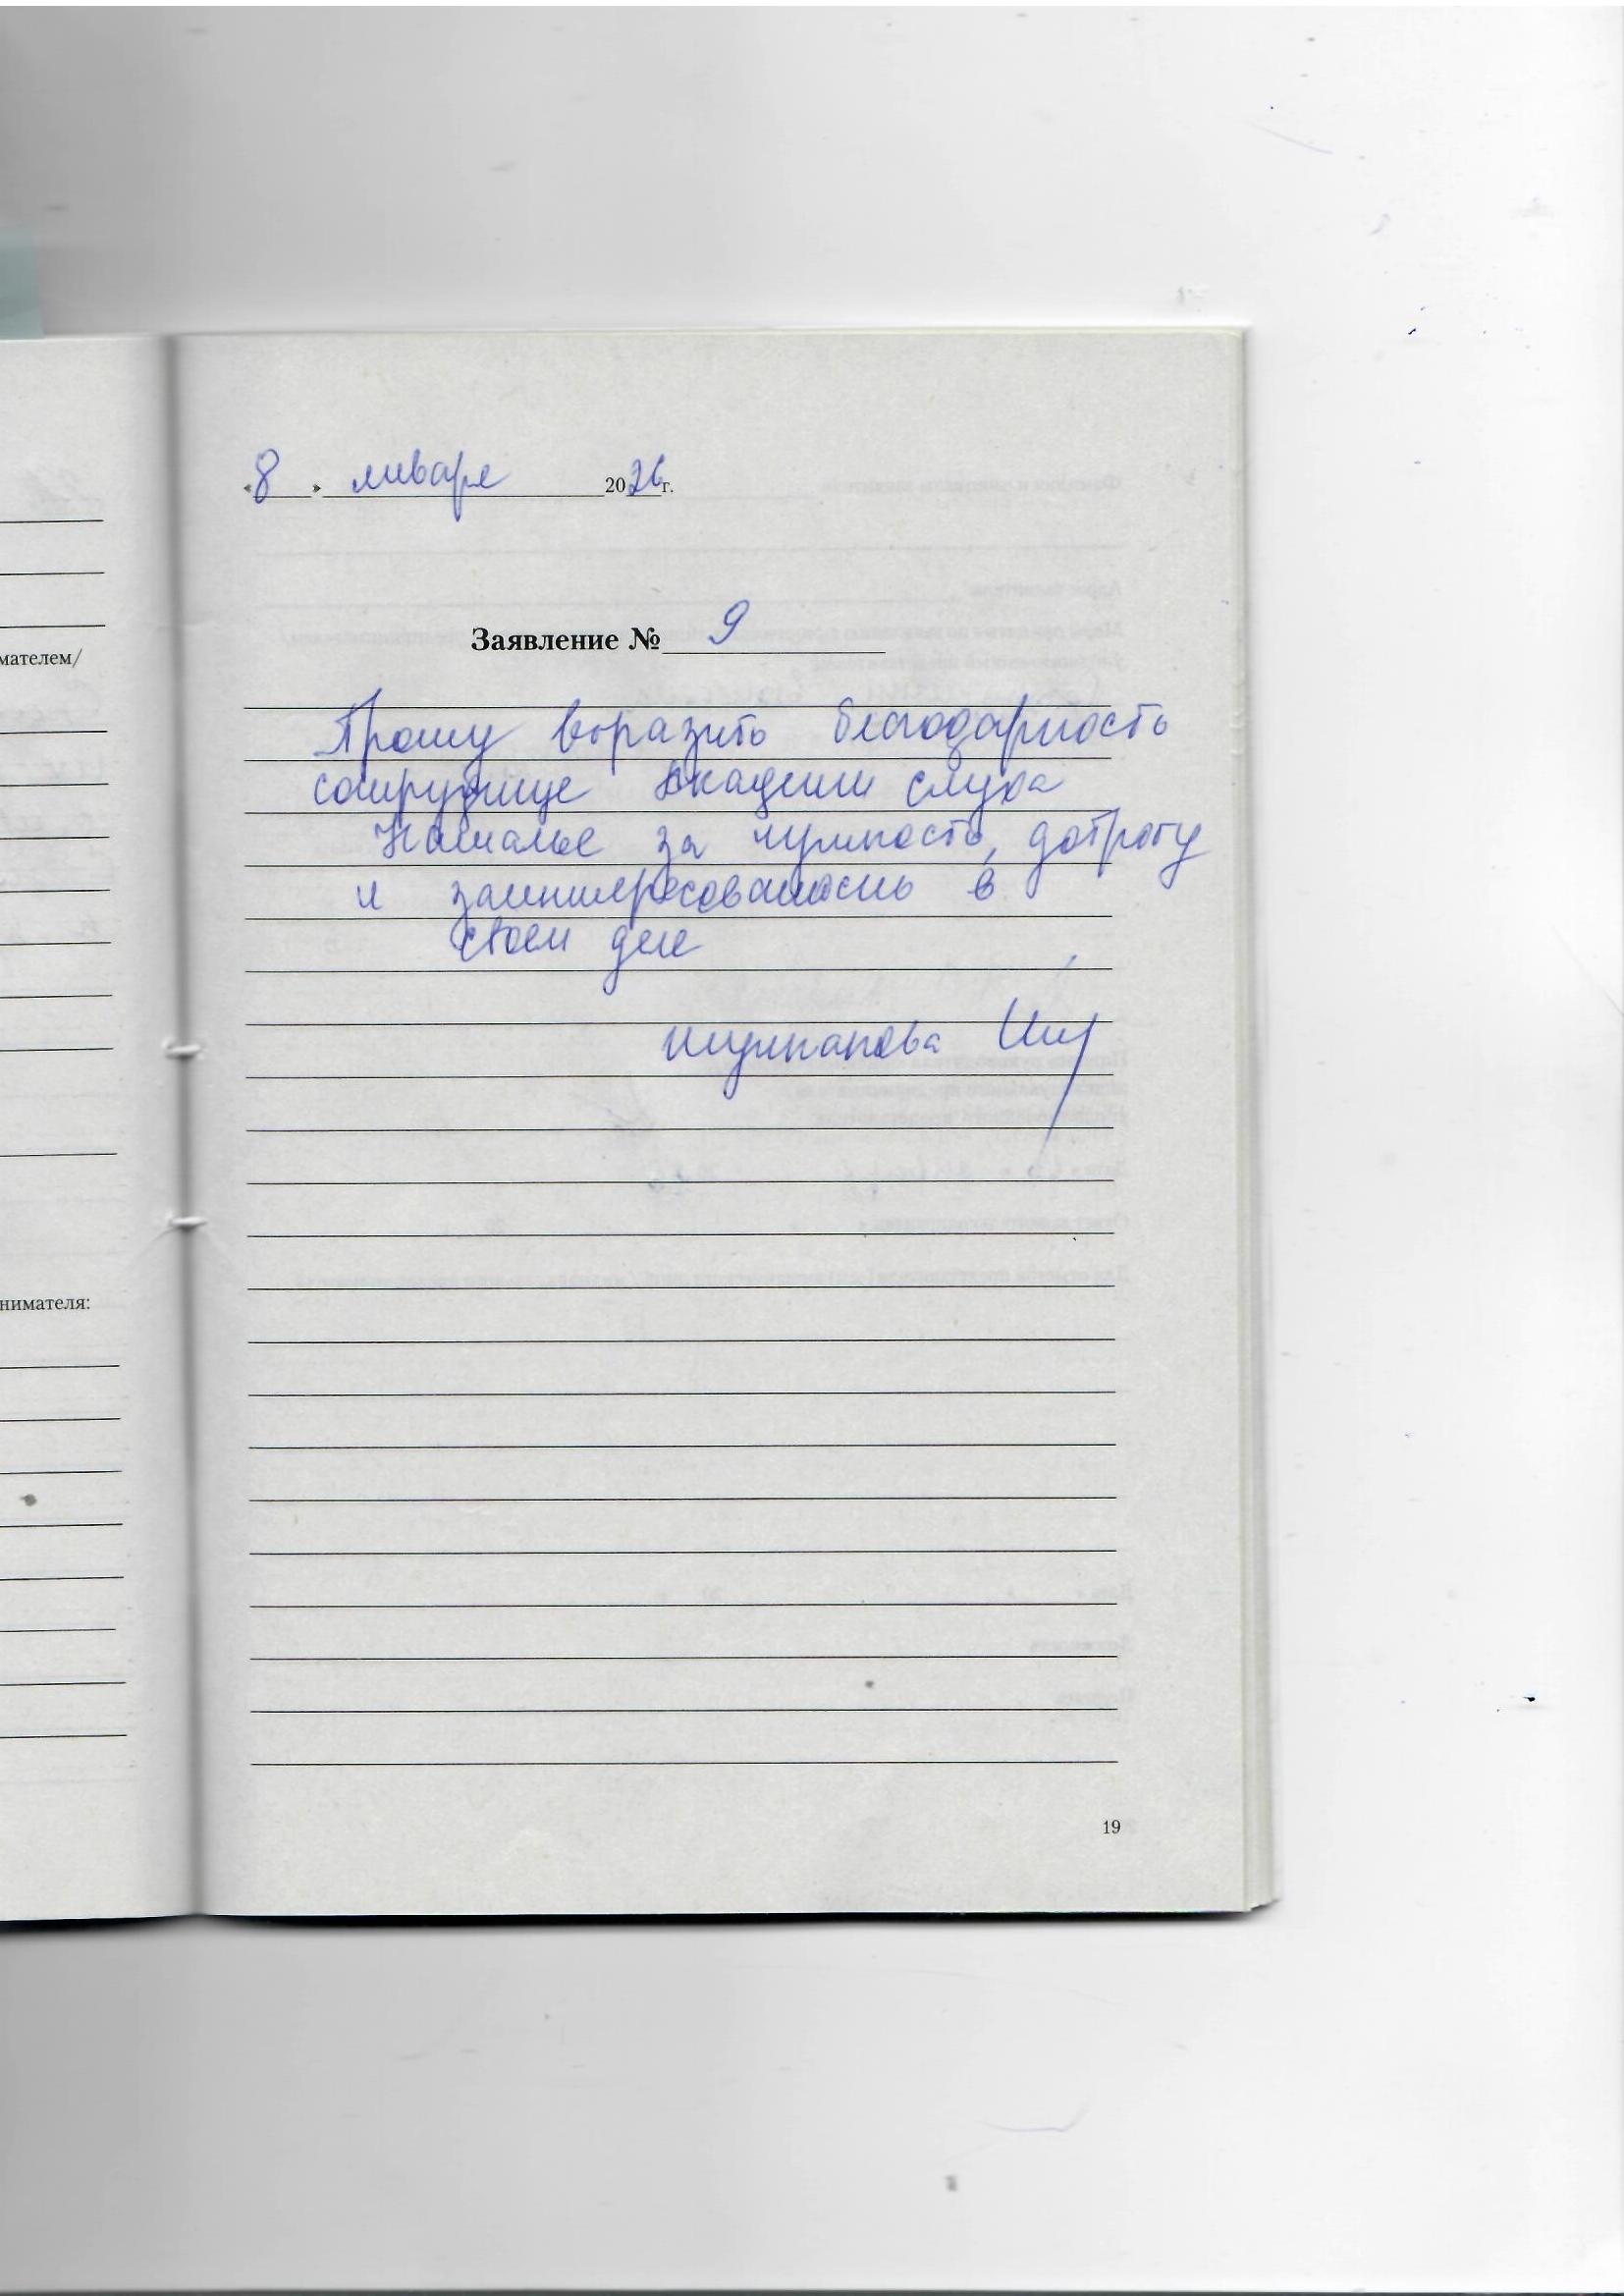 мателем/
нимателя:
«8» января 2026г.
Заявление № 9
Прошу выразить благодарность
сотруднице Академии слуха
Наталье за чуткость, доброту
и заинтересованность в
своем деле
19